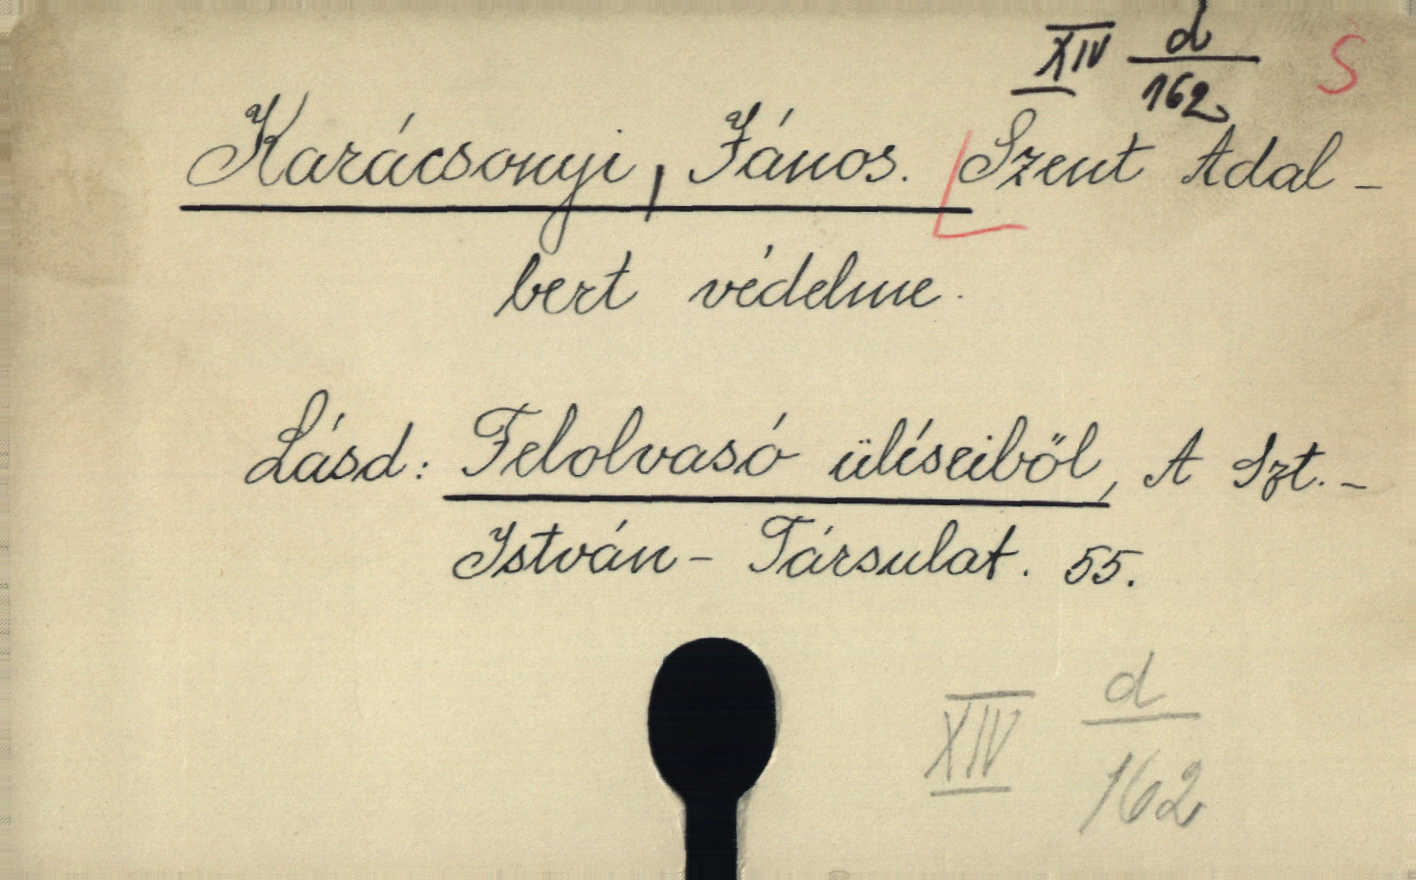 XIV d/162 S
Karácsonyi, János. Szent Adal-
bert védelme.
Lásd: Felolvasó üléseiből, A Szt.-
István-Társulat. 55.
XIV d/162